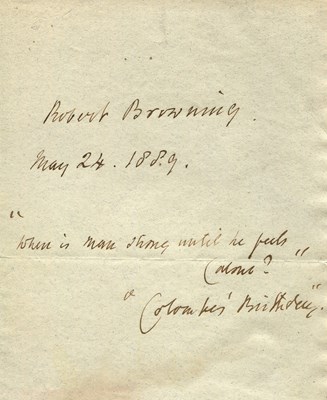 Robert Browning.
May 24. 1889.
"When is man strong until he feels
alone?"
"Colombe's Birthday."